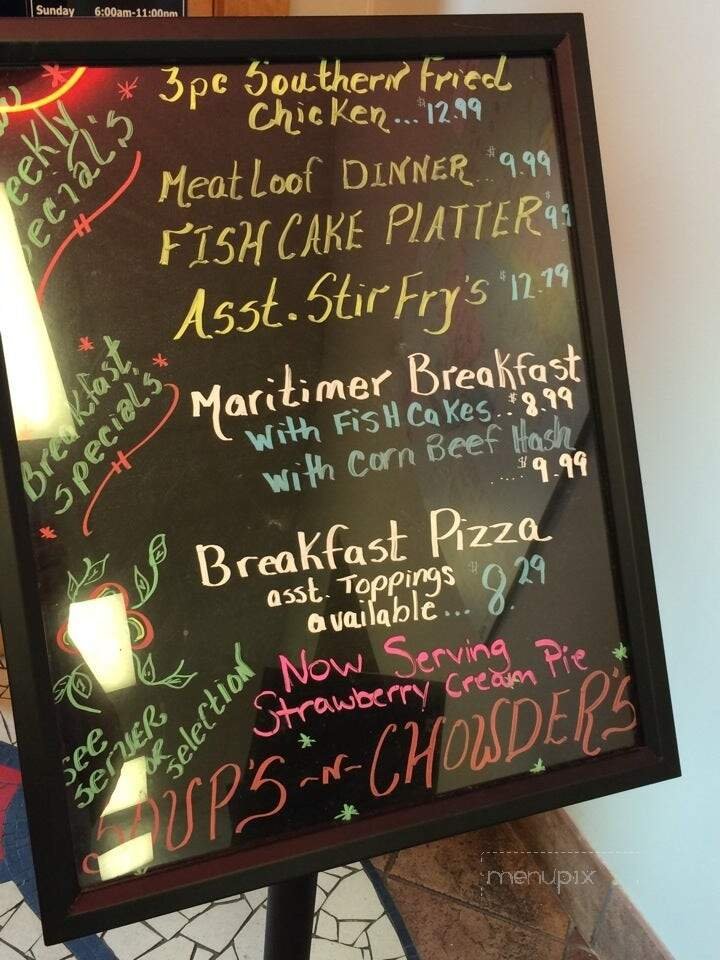 Sunday 6:00am-11:00pm
3pc Southern Fried
Chicken... $12.99
Meat Loof DINNER.. $9.99
FISH CAKE PLATTER
Asst. Stir Fry's $12.79
Maritimer Breakfast
with FisH Cakes.. $8.99
with Corn Beef Hash
.... $9.99
Breakfast Pizza
asst. Toppings
available... $8.29
Now Serving
Strawberry Cream Pie
SOUP'S -N- CHOWDER'S
Breakfast
Specials
See
Server
selection
menupix